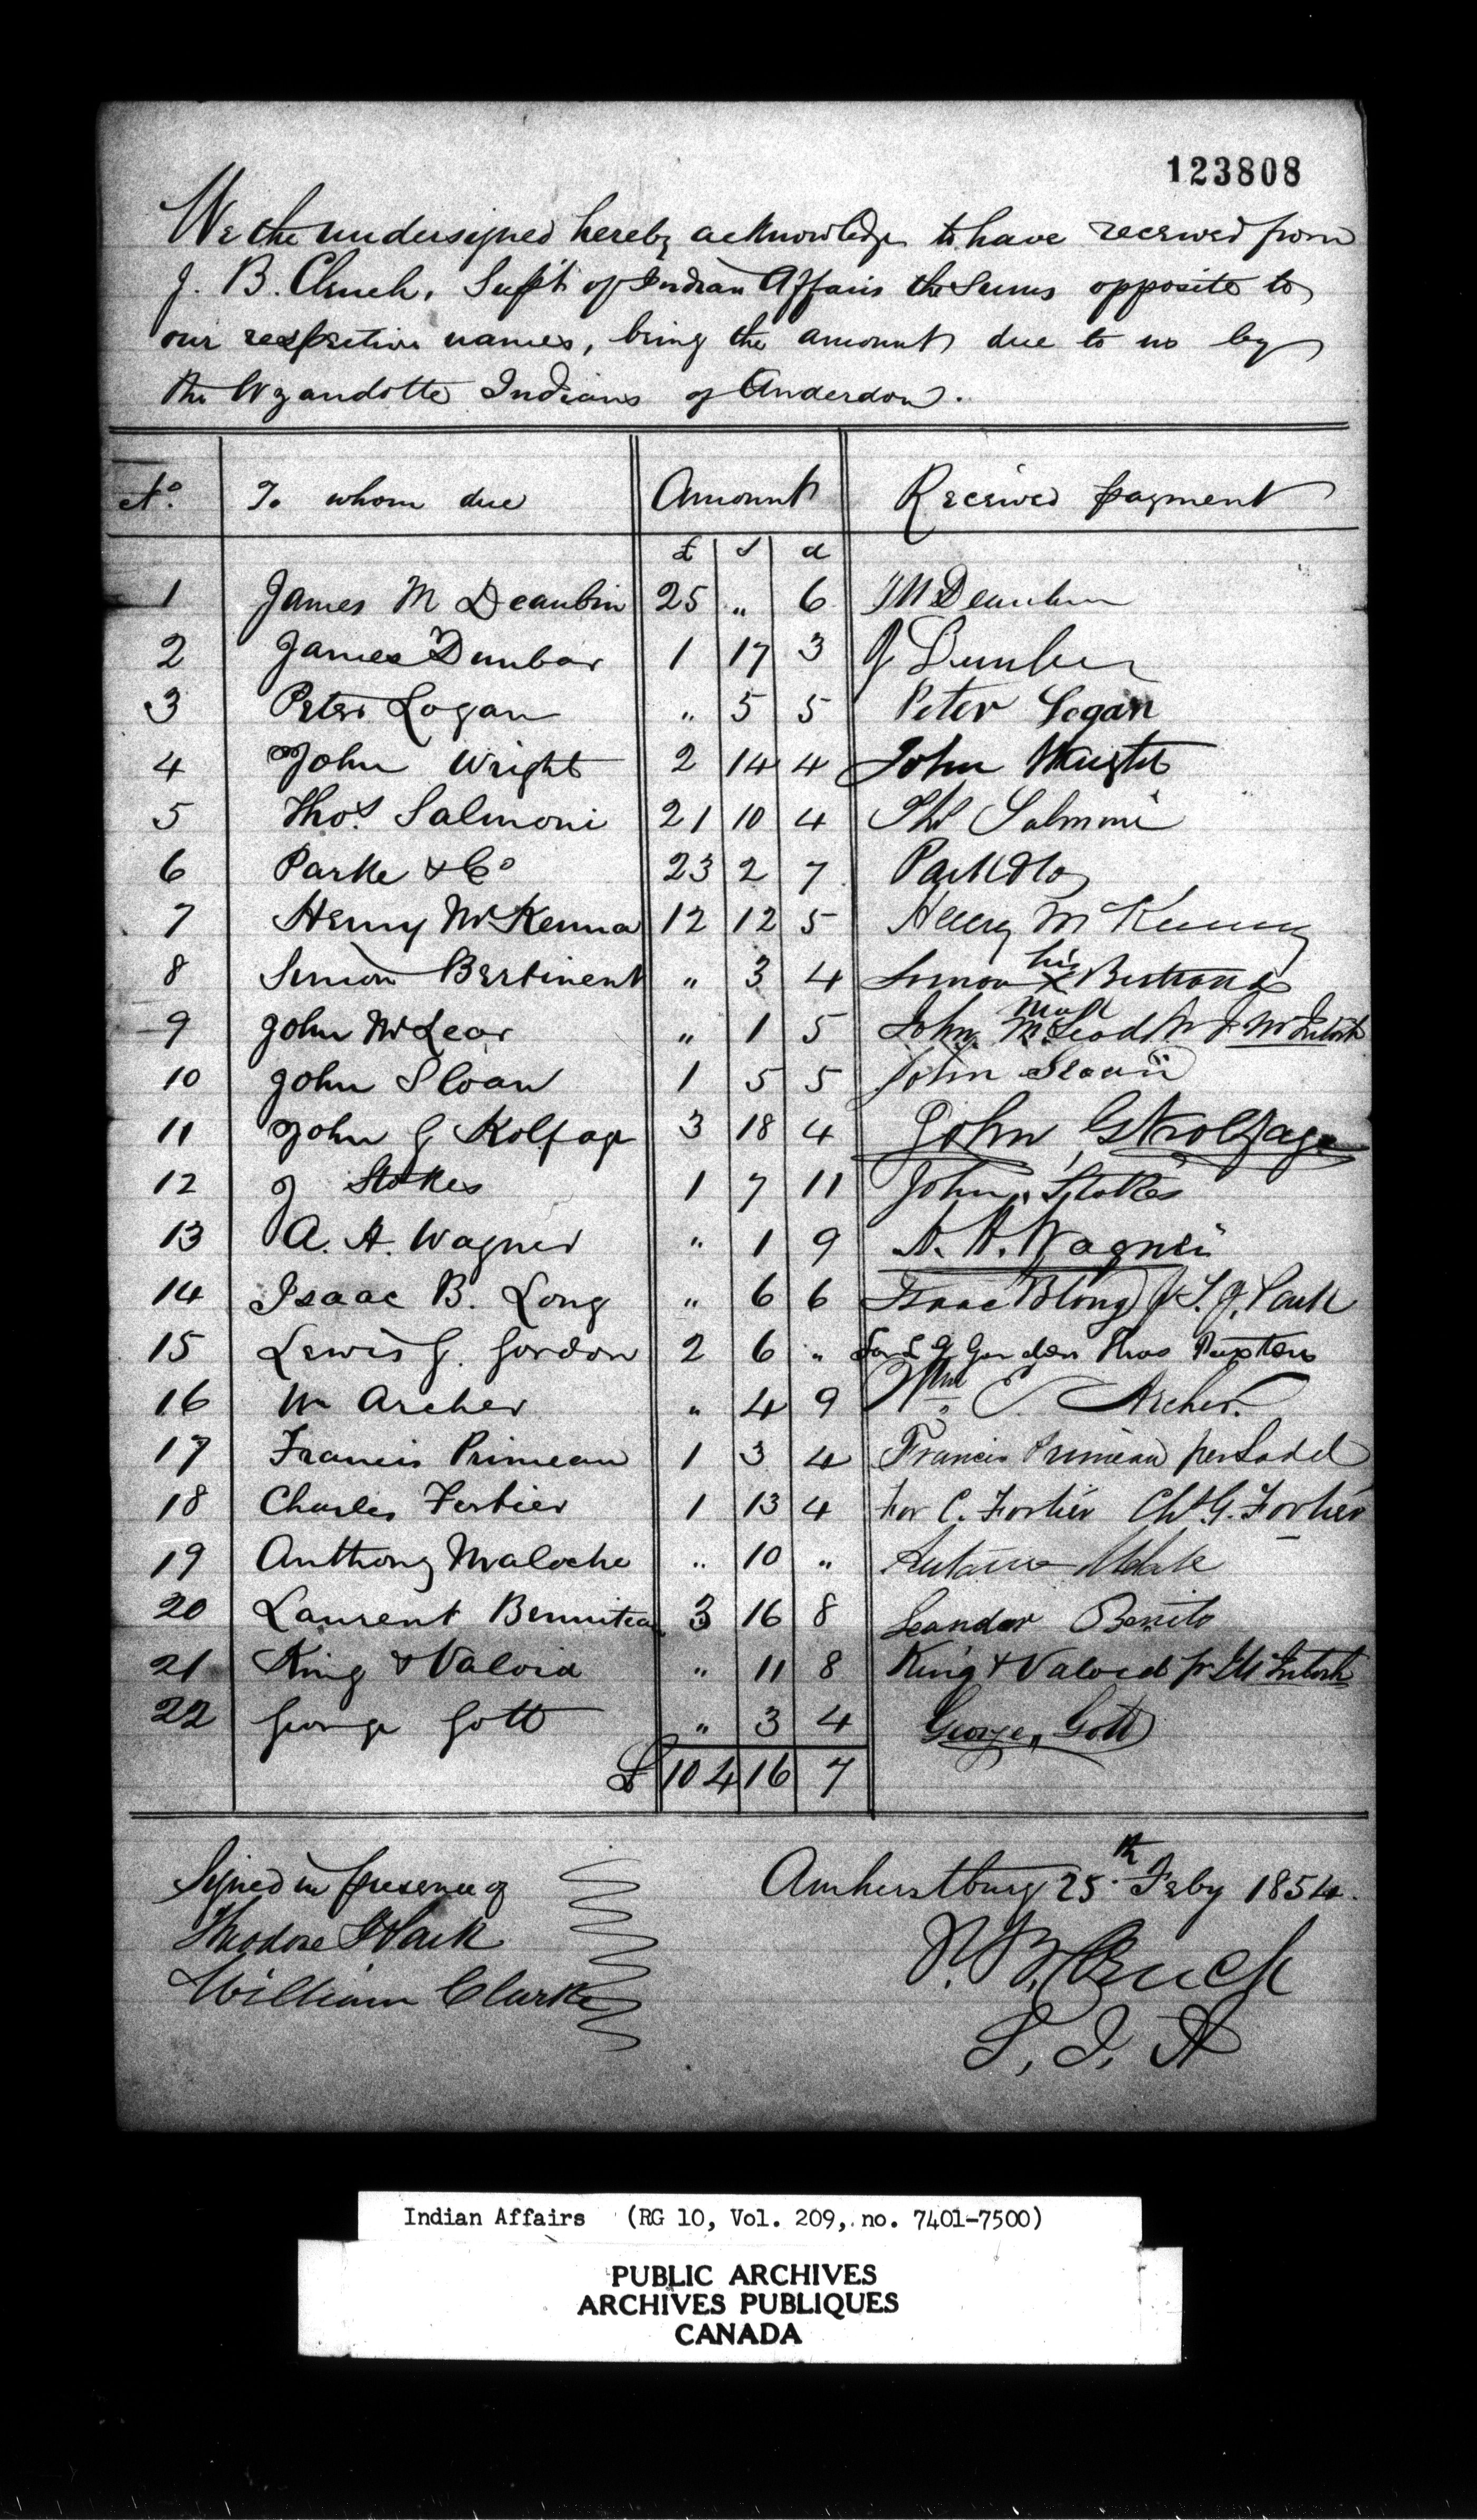 123808
We the undersigned hereby acknowledge to have received from
J. B. Clench, Supt of Indian Affairs the Sums opposite to
our respective names, being the amount due to us by
the Wyandotte Indians of Anderdon.
No. To whom due Amount Received payment
£ s d
1 James M Deaubin 25 " 6
2 James Dunbar 1 17 3 J Dunbar
3 Peter Logan " 5 5 Peter Logan
4 John Wright 2 14 4 John Wright
5 Thos. Salmoni 21 10 4 Thos Salmoni
6 Parke & Co 23 2 7 Park & Co
7 Henry McKenna 12 12 5 Henry McKenny
8 Simon Bertinent " 3 4 Simon his X mark Bertrand
9 John McLear " 1 5 John McLeod pr J. McIntosh
10 John Sloan 1 5 5 John Sloan
11 John G Kolfage 3 18 4 John G Kolfage
12 J Stokes 1 7 11 John Stokes
13 A. H. Wagner " 1 9 A. H. Wagner
14 Isaac B. Long " 6 6 Isaac B Long J. Park
15 Lewis G. Gordon 2 6 " For L G Gorden Thos Paxton
16 Wm Archer " 4 9 Wm E. Archer.
17 Francis Primeau 1 3 4 Francis Primeau per
18 Charles Fortier 1 13 4 For C. Fortier Chs G. Fortier
19 Anthony Maloche " 10 "
20 Laurent Benniteau 3 16 8 Leander Benito
21 King & Valoid " 11 8 King & Valoid pr McIntosh
22 George Gott " 3 4 George Gott
£ 104 16 7
Signed in presence of
Theodore J Park
William Clarke
Amherstburg 25th Feby 1854.
J. B. Clench
S. I. A
Indian Affairs (RG 10, Vol. 209, no. 7401-7500)
PUBLIC ARCHIVES
ARCHIVES PUBLIQUES
CANADA